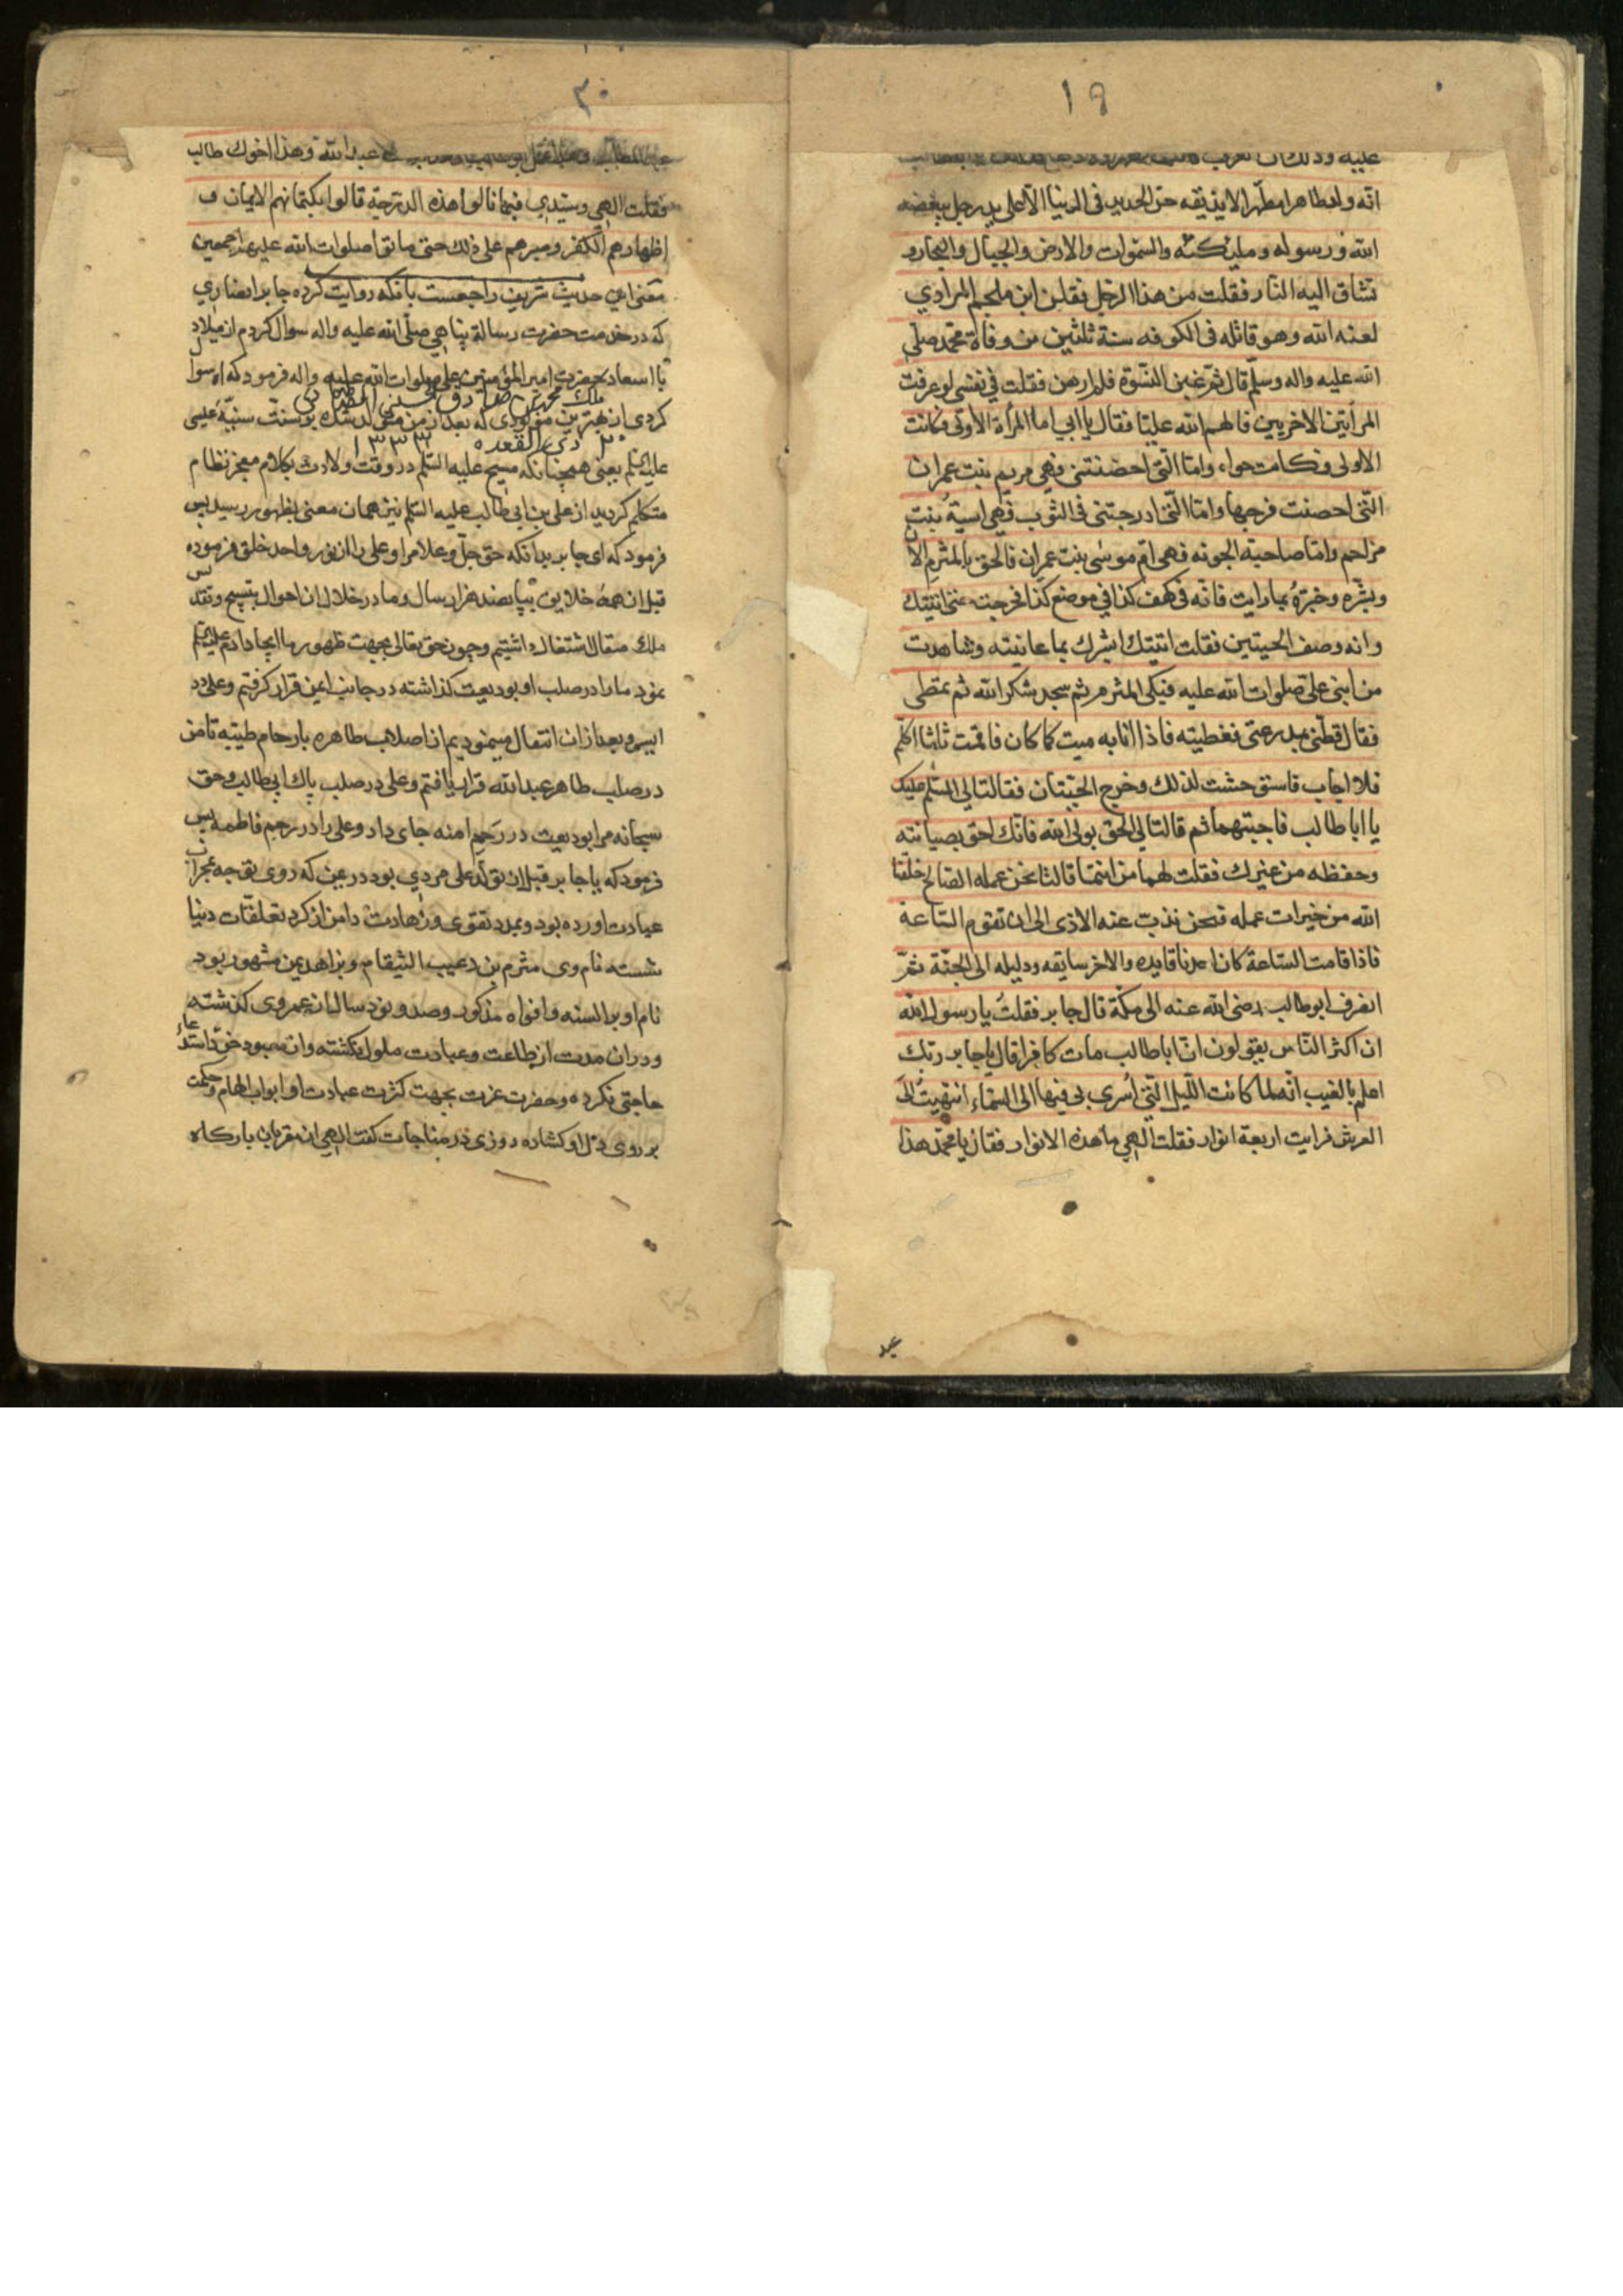 ١٩
عليه وذلك ان
انّه ولد طاهرا مطهّرا لا يذيقه حرّ الحديد فى الدنيا الّا على يد رجل يبغضه
الله ورسوله وملئكته والسّموات والارض والجبال والبحار و
تشتاق اليه النّار فقلت من هذا الرّجل فقلن ابن ملجم المرادي
لعنه الله وهو قاتله فى الكوفه سنة ثلثين من وفاة محمّد صلّى
الله عليه واله وسلّم قال ثم غبن النّسوة فلم ارهن فقلت في نفسى لو عرفت
المرأتين الاخريين فالهم الله عليّا فقال يا ابي اما المرأة الأولى فكانت
الاولى فكانت حواء وامّا الّتى احضنتنى فهى مريم بنت عمران
الّتى احصنت فرجها وامّا الّتى ادرجتنى فى الثوب فهى اسية بنت
مزاحم وامّا صاحبة الجونه فهى امّ موسى بنت عمران فالحق بالمثرم الان
وبشّره وخبّره بما رايت فانّه فى كهف كذا في موضع كذا فخرجت حتى اتيتك
وانه وصف الحيتين فقلت اتيتك ابشرك بما عاينته وشاهدت
من ابنى علىّ صلوات الله عليه فبكى المثرم ثم سجد شكرا لله ثم تمطى
فقال غطّنى بمدرعتى فغطيته فاذا انا به ميت كما كان فاقمت ثلثا اكلّم
فلا اجاب فاستوحشت لذلك وخرج الحيّتان فقالتا لى السّلم عليك
يا ابا طالب فاجبتهما ثم قالتا لى الحق بولى الله فانّك احق بصيانته
وحفظه من غيرك فقلت لهما من انتما قالتا نحن عمله الصّالح خلقنا
الله من خيرات عمله فنحن نذبّ عنه الاذى الى ان تقوم السّاعة
فاذا قامت السّاعة كان احدنا قايده والاخر سايقه ودليله الى الجنّة ثمّ
انصرف ابو طالب رضى الله عنه الى مكّة قال جابر فقلت يا رسول الله
ان اكثر النّاس يقولون انّ ابا طالب مات كافرا قال يا جابر ربّك
اعلم بالغيب انّه لما كانت اللّيل الّتى اسرى بى فيها الى السّماء انتهيت الى
العرش فرايت اربعة انوار فقلت الهي ما هذه الانوار فقال يا محمّد هذا
عبد
٢٠
عبد المطلب وهذا ابو طالب وهذا عبد الله وهذا اخوك طالب
فقلت الهى وسيّدي فبما نالوا هذه الدرجة قالوا بكتمانهم الايمان و
اظهارهم الكفر وصبرهم على ذلك حتى ماتوا صلوات الله عليهم اجمعين
معنى اين حديث شريف راجعست بانكه روايت كرده جابر انصاري
كه در خدمت حضرت رسالة پناهي صلّى الله عليه واله سوال كردم از ميلاد
با اسعاد حضرت امير المؤمنين على صلوات الله عليه واله فرمود كه اه سوال
ملك محمد بن صادق الحسني الطباطبائي
كردى از بهترين مولودى كه بعد از من متولد شده بر سنّت سنيّه عيسى
٢٠ ذى القعده ١٣٣٣
عليه السلم يعنى همچنانكه مسيح عليه السّلم در وقت ولادت بكلام معجز نظام
متكلم كرديد از على بن ابي طالب عليه السّلم نيز همان معنى بظهور رسيد پس
فرمود كه اى جابر بدانكه حق جلّ وعلا مرا وعلى را از نور واحد خلق فرموده
قبل از همه خلايق بپانصد هزار سال وما در خلال ان احوال بتسبيح وتقديس
ملك متعال اشتغال داشتيم وچون حق تعالى بجهت ظهور ما ايجاد ادم عليه السلم
نمود ما را در صلب او بوديعت كذاشته در جانب ايمن قرار كرفتم وعلى در
ايسر وبعد از ان انتقال مينموديم از اصلاب طاهره بارحام طيّبه تا من
در صلب طاهر عبد الله قرار يافتم وعلى در صلب پاك ابى طالب وحق
سبحانه مرا بوديعت در رحم امنه جاى داد وعلى را در رحم فاطمه پس
فرمود كه يا جابر قبل از تولّد على مردي بود در عين كه روى توجه بمحراب
عبادت اورده بود وبمدد تقوى وزهادت دامن از كرد تعلّقات دنيا
شسته نام وى مثرم بن دعيب الشيقام وبزاهد يمن مشهور بود
نام او بر السنه وافواه مذكور وصد ونود سال از عمر وى كذشته
ودر ان مدت از طاعت وعبادت ملول نكشته واز معبود خود استدعاء
حاجتى نكرده وحضرت عزت بجهت كثرت عبادت او ابواب الهام وحكمت
بر روى دل او كشاده روزى در مناجات كفت الهى از مقربان باركاه